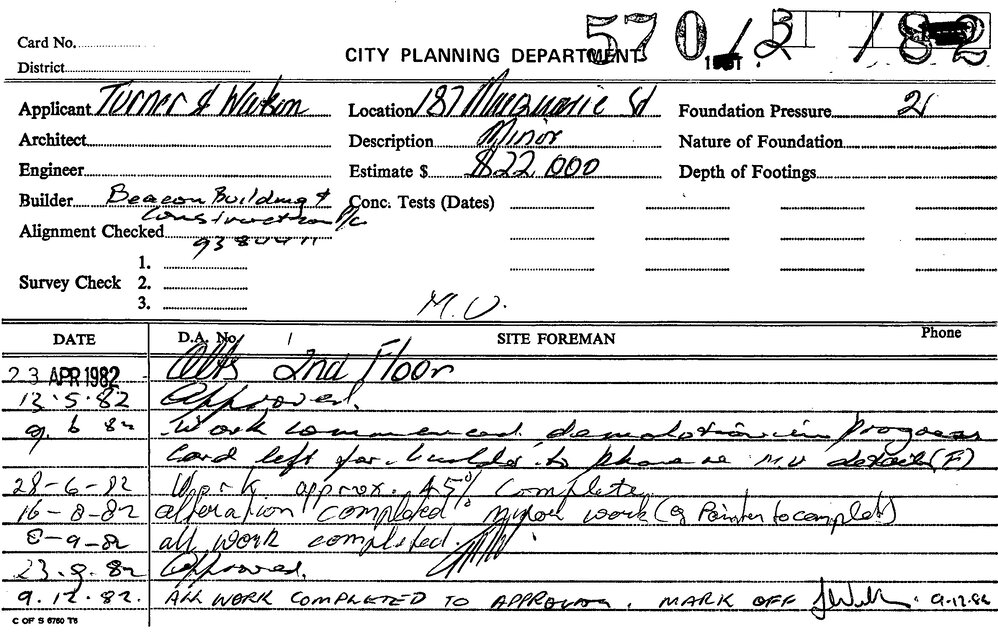 570/2/82
Card No.
CITY PLANNING DEPARTMENT
District
Applicant Turner & Watson Location 187 Macquarie St Foundation Pressure 2
Architect Description Minor Nature of Foundation
Engineer Estimate $ $22,000 Depth of Footings
Builder Beacon Building & Construction P/L Conc. Tests (Dates)
Alignment Checked
1.
Survey Check 2.
3.
M.V.
DATE D.A. No. SITE FOREMAN Phone
23 APR 1982 Alts 2nd Floor
13.5.82 Approved.
9.6 82 Work commenced demolition in progress
Card left for builder to phone re M.V details (F)
28-6-82 Work approx. 45% complete
16-8-82 alteration completed minor work (eg Painter to complete)
8-9-82 all work completed.
23.9.82 Approved.
9.12.82. ALL WORK COMPLETED TO APPROVAL. MARK OFF 9.12.82
C OF S 6750 T6